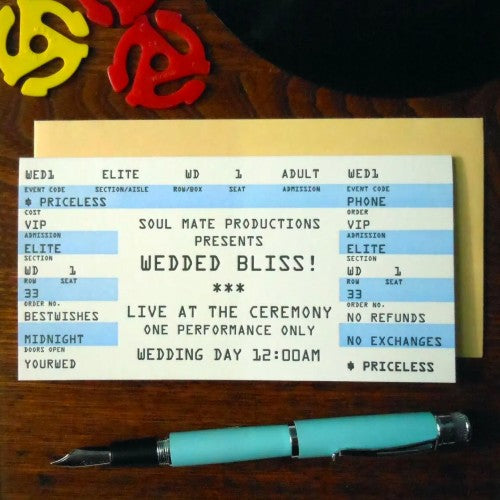 WED1 ELITE WD 1 ADULT WED1
EVENT CODE SECTION/AISLE ROW/BOX SEAT ADMISSION EVENT CODE
$ PRICELESS
COST
VIP
ADMISSION
ELITE
SECTION
WD 1
ROW SEAT
33
ORDER NO.
BESTWISHES
MIDNIGHT
DOORS OPEN
YOURWED
SOUL MATE PRODUCTIONS
PRESENTS
WEDDED BLISS!
***
LIVE AT THE CEREMONY
ONE PERFORMANCE ONLY
WEDDING DAY 12:00AM
PHONE
ORDER
VIP
ADMISSION
ELITE
SECTION
WD 1
ROW SEAT
33
ORDER NO.
NO REFUNDS
NO EXCHANGES
$ PRICELESS